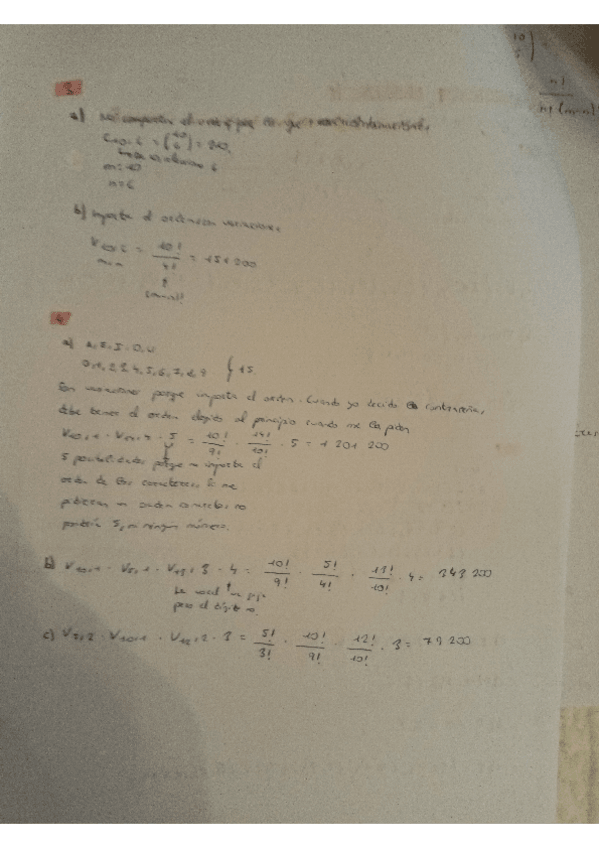 10
5
n!
3.
a) No importa el orden porque
C10,6 = (10 6) = 210
m=10
n=6
b) importa el orden variaciones
V10,6 = 10! / 4! = 151200
m,n
(m-n)!
4.
a) A, E, I, O, U
0,1,2,3,4,5,6,7,8,9 } 15
Son variaciones porque importa el orden. Cuando yo decido la contraseña,
debe tener el orden elegido al principio cuando me la piden
V10,1 · V14,4 · 5 = 10!/9! · 14!/10! · 5 = 1 201 200
5 posibilidades porque no importa el
orden de los caracteres, si me
pidieran un orden correcto, no
pondría 5, ni ningún número.
b) V10,1 · V5,1 · V13,3 · 4 = 10!/9! · 5!/4! · 13!/10! · 4 = 343 200
la vocal
pero el dígito no.
c) V5,2 · V10,1 · V12,2 · 3 = 5!/3! · 10!/9! · 12!/10! · 3 = 79 200